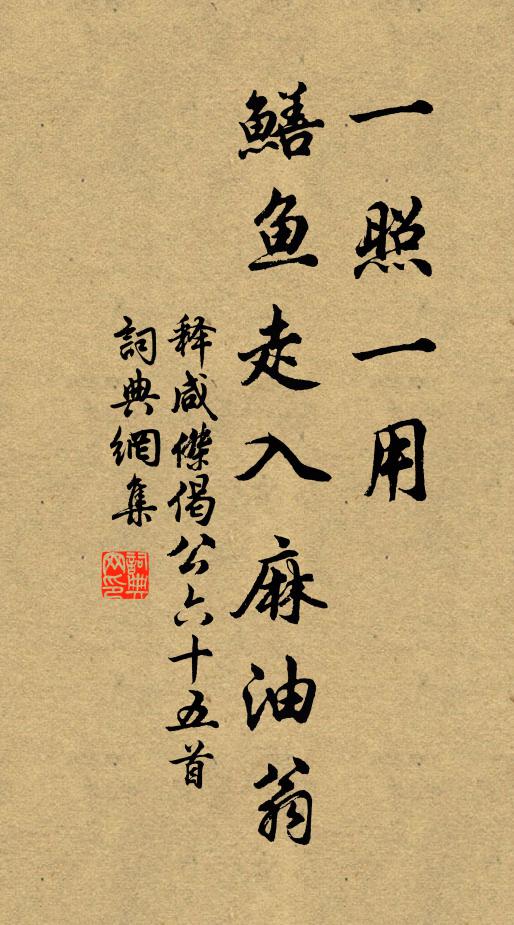 一照一用
鳝鱼走入麻油翁
释咸傑偈公六十五首
詞典網集
詞典网印